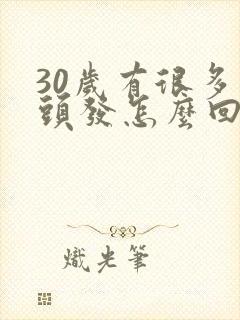 30歲有很多
頭發怎麼回
熾光筆